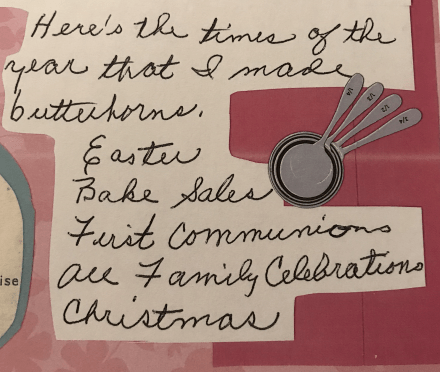 Here's the times of the
year that I made
butterhorns.
Easter
Bake Sales
First Communions
All Family Celebrations
Christmas
ise